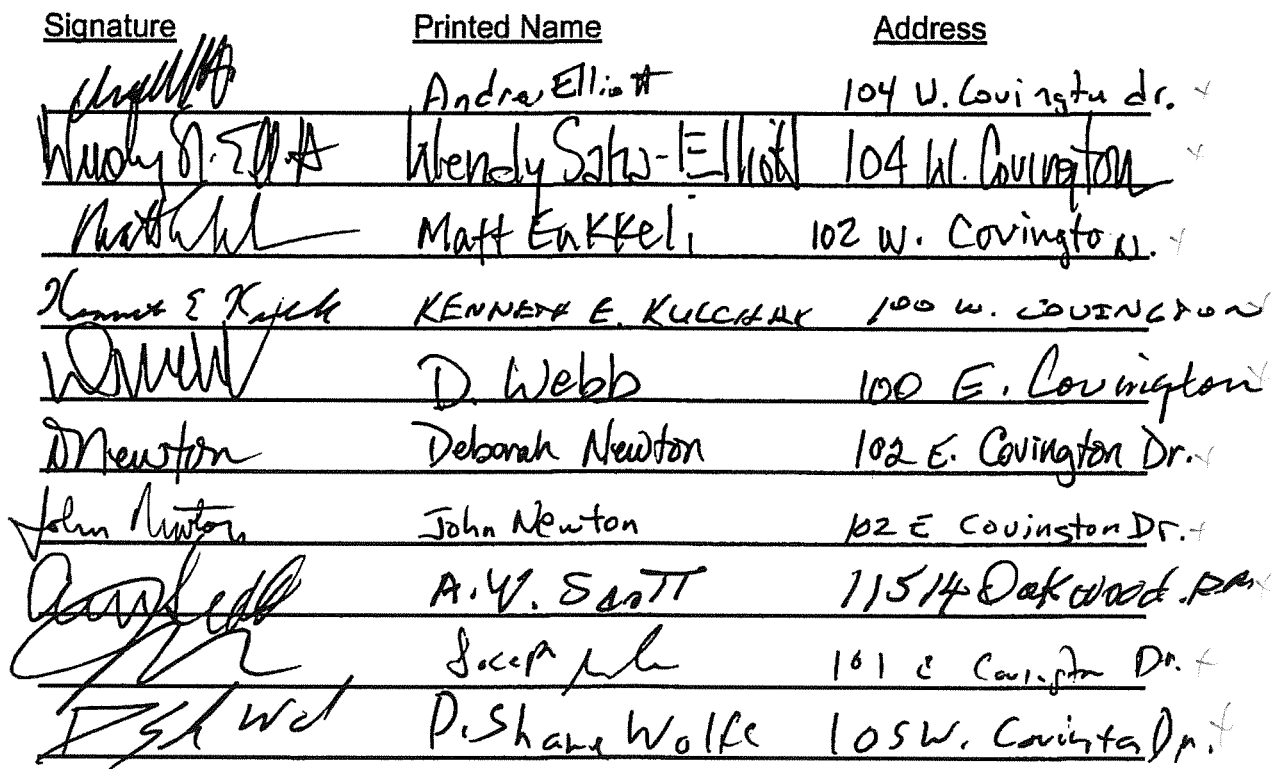 Signature Printed Name Address
Andrew Elliott 104 W. Covington dr.
Wendy S. Elliott Wendy Elliott 104 W. Covington
Matt Matt Enkkeli 102 W. Covington
Kenneth E KENNETH E. KULCHAK 100 W. COVINGTON
D. Webb 100 E. Covington
DNewton Deborah Newton 102 E. Covington Dr.
John Newton John Newton 102 E Covington Dr.
A.W. Scott 11514 Oakwood Dr.
Joseph 101 E Covington Dr.
D. Shane Wolfe 105 W. Covington Dr.